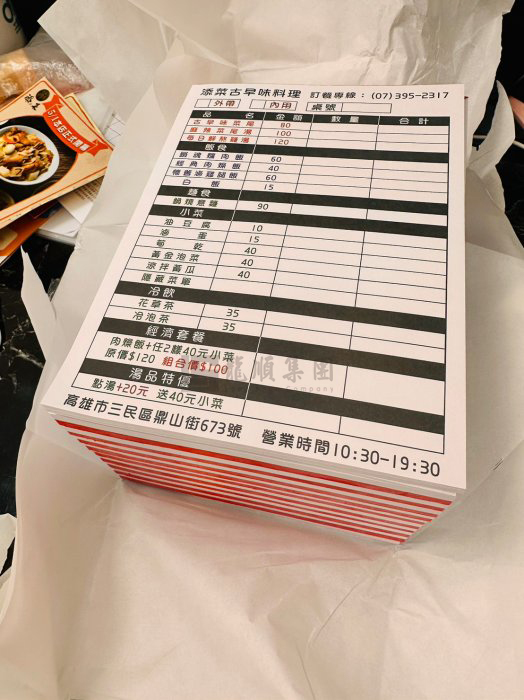 添菜古早味料理 訂餐專線：(07)395-2317
外帶 內用 桌號
品名 金額 數量 合計
古早味菜尾 80
麻辣菜尾湯 100
每日鮮熬雞湯 120
飯食
經典肉燥飯 40
60
白飯 15
麵食
鍋燒意麵 90
小菜
油豆腐 10
滷蛋 15
筍乾 40
黃金泡菜 40
涼拌黃瓜 40
隱藏菜單
冷飲
花草茶 35
冷泡茶 35
經濟套餐
肉燥飯+任2樣40元小菜
原價$120 組合價$100
湯品特優
點湯+20元 送40元小菜
高雄市三民區鼎山街673號 營業時間10:30-19:30
龍順集團
5/1本店正式開幕